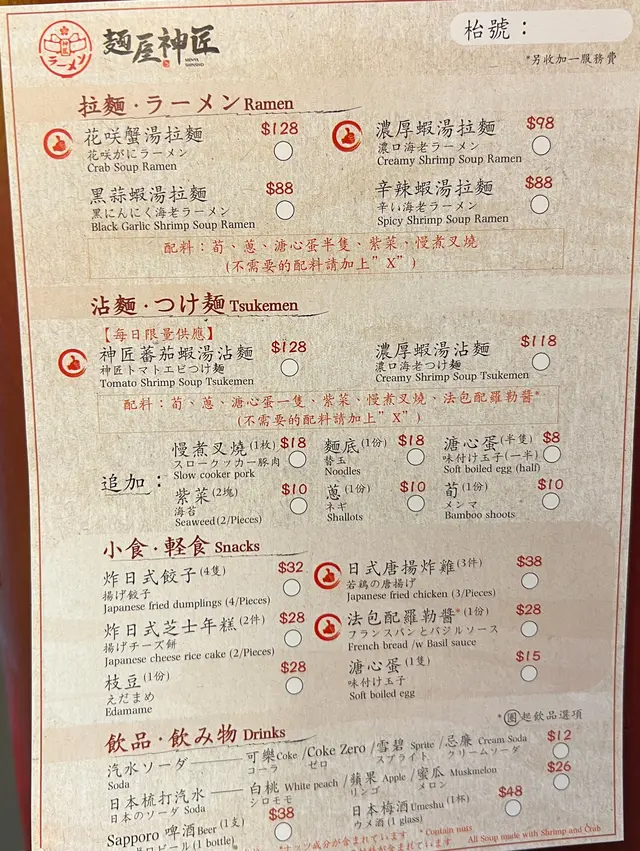 神匠
ラーメン
麵屋神匠
MENYA SHINSHO
枱號：
*另收加一服務費
拉麵・ラーメン Ramen
花咲蟹湯拉麵 $128
花咲がにラーメン
Crab Soup Ramen
濃厚蝦湯拉麵 $98
濃口海老ラーメン
Creamy Shrimp Soup Ramen
黑蒜蝦湯拉麵 $88
黒にんにく海老ラーメン
Black Garlic Shrimp Soup Ramen
辛辣蝦湯拉麵 $88
辛い海老ラーメン
Spicy Shrimp Soup Ramen
配料：荀、蔥、溏心蛋半隻、紫菜、慢煮叉燒
(不需要的配料請加上”X”)
沾麵・つけ麺 Tsukemen
【每日限量供應】
神匠蕃茄蝦湯沾麵 $128
神匠トマトエビつけ麺
Tomato Shrimp Soup Tsukemen
濃厚蝦湯沾麵 $118
濃口海老つけ麺
Creamy Shrimp Soup Tsukemen
配料：荀、蔥、溏心蛋一隻、紫菜、慢煮叉燒、法包配羅勒醬*
(不需要的配料請加上”X”)
追加：
慢煮叉燒(1枚) $18
スロークッカー豚肉
Slow cooker pork
麵底(1份) $18
替玉
Noodles
溏心蛋(半隻) $8
味付け玉子(一半)
Soft boiled egg (half)
紫菜(2塊) $10
海苔
Seaweed(2/Pieces)
蔥(1份) $10
ネギ
Shallots
荀(1份) $10
メンマ
Bamboo shoots
小食・軽食 Snacks
炸日式餃子(4隻) $32
揚げ餃子
Japanese fried dumplings (4/Pieces)
日式唐揚炸雞(3件) $38
若鶏の唐揚げ
Japanese fried chicken (3/Pieces)
炸日式芝士年糕(2件) $28
揚げチーズ餅
Japanese cheese rice cake (2/Pieces)
法包配羅勒醬*(1份) $28
フランスパンとバジルソース
French bread /w Basil sauce
枝豆(1份) $28
えだまめ
Edamame
溏心蛋(1隻) $15
味付け玉子
Soft boiled egg
飲品・飲み物 Drinks
*圈起飲品選項
汽水ソーダ 可樂Coke /Coke Zero /雪碧 Sprite /忌廉 Cream Soda $12
Soda コーラ ゼロ スプライト クリームソーダ
日本梳打汽水 白桃 White peach /蘋果 Apple /蜜瓜 Muskmelon $26
日本のソーダ Soda シロモモ リンゴ メロン
Sapporo 啤酒Beer (1支) $38
ビール(1 bottle)
日本梅酒Umeshu (1杯) $48
ウメ酒(1 glass)
*ナッツ成分が含まれています *Contain nuts
All Soup made with Shrimp and Crab